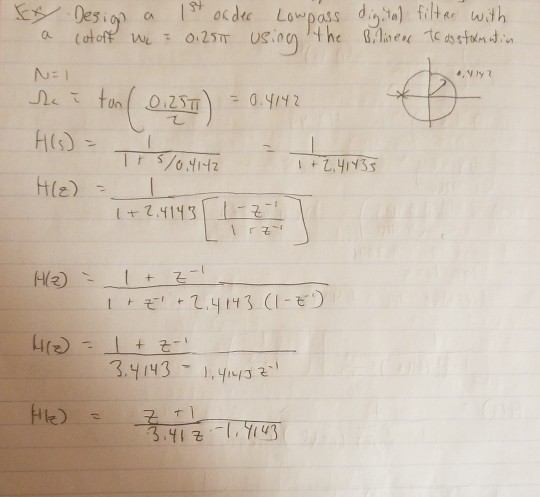 Ex/ Design a 1st order Lowpass digital filter with
a cutoff wc = 0.25π using the Bilinear Transformation
N=1
Ωc = tan(0.25π/2) = 0.4142
0.4142
H(s) = 1/(1 + s/0.4142) = 1/(1 + 2.4143s)
H(z) = 1/(1 + 2.4143[(1 - z⁻¹)/(1 + z⁻¹)])
H(z) = (1 + z⁻¹)/(1 + z⁻¹ + 2.4143 (1 - z⁻¹))
H(z) = (1 + z⁻¹)/(3.4143 - 1.4143 z⁻¹)
H(z) = (z + 1)/(3.41 z - 1.4143)